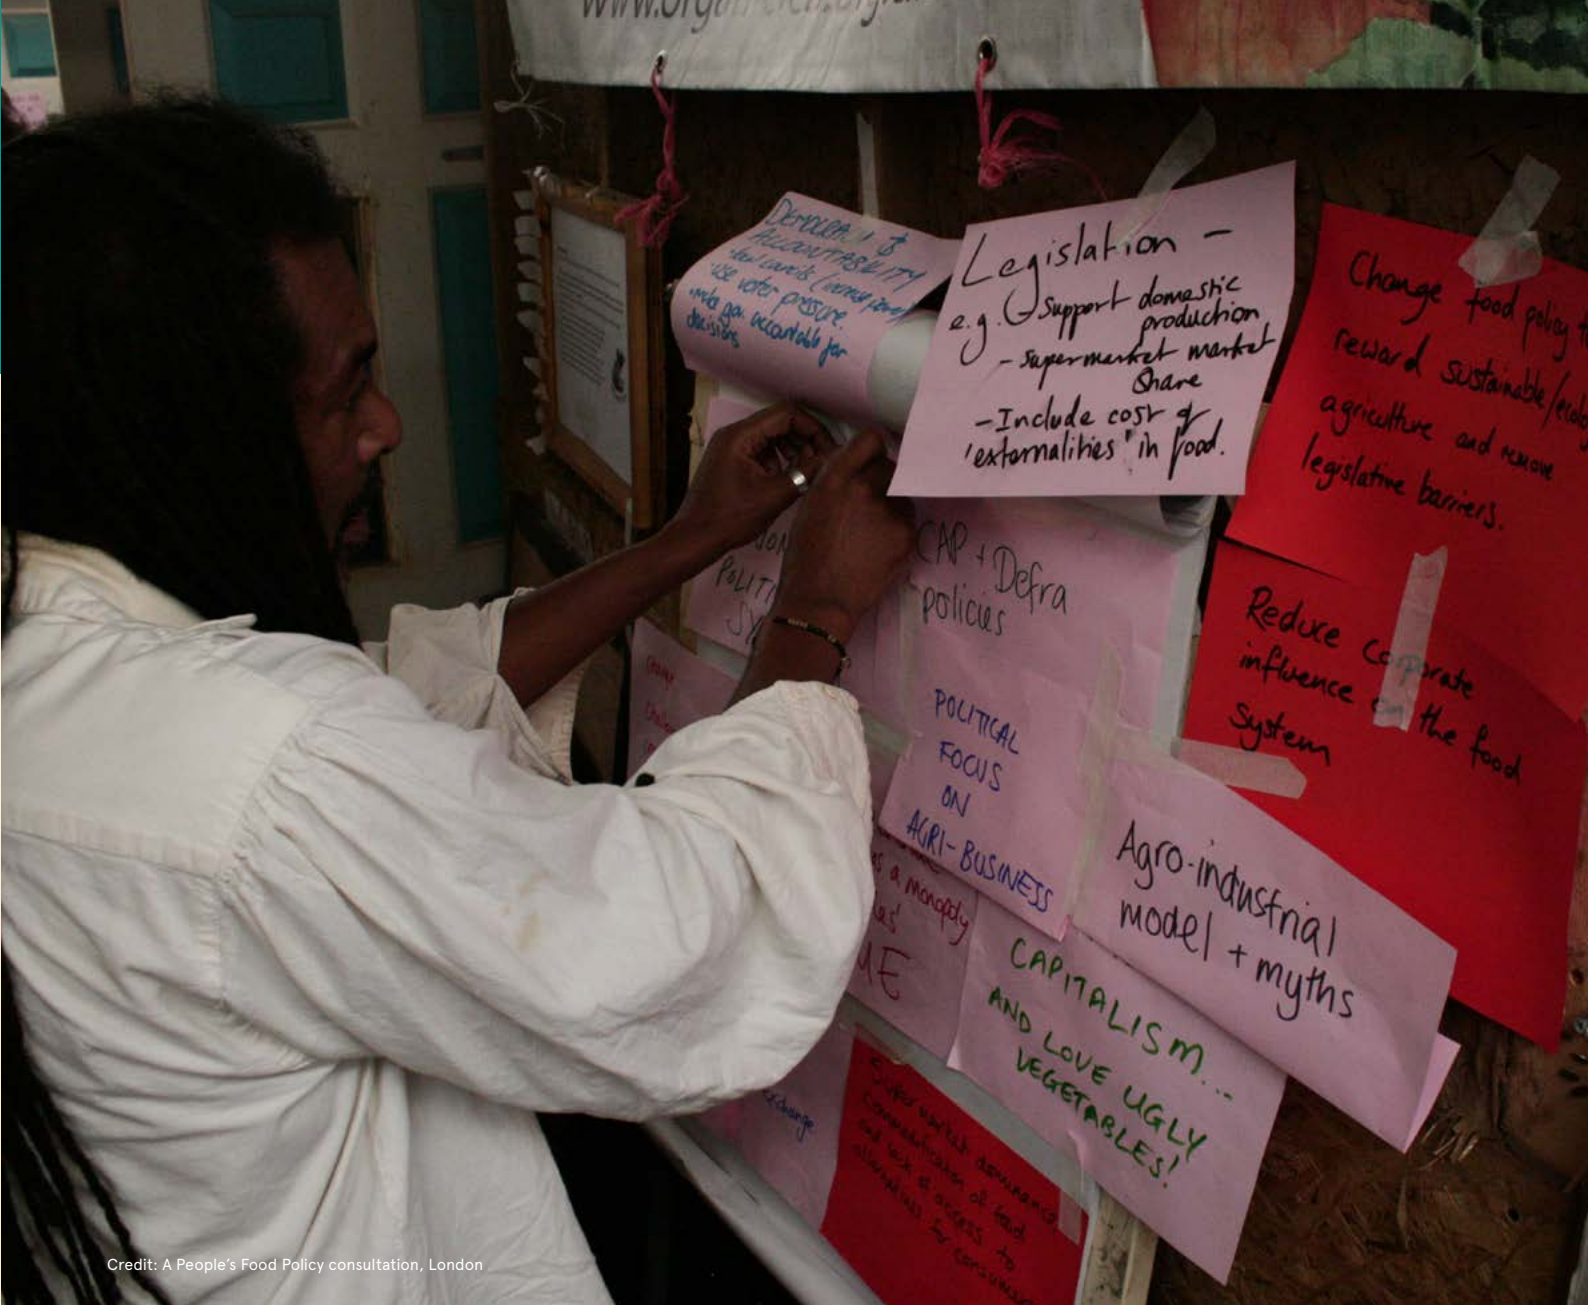 DEMOCRACY &
ACCOUNTABILITY
use voter pressure.
make gov. accountable for
decisions
Legislation -
e.g. Support domestic
production
- supermarket market
share
- Include cost of
'externalities' in food.
Change food policy
reward sustainable/
agriculture and remove
legislative barriers.
CAP + Defra
policies
Reduce Corporate
influence on the food
system
POLITICAL
FOCUS
ON
AGRI-BUSINESS
as a monopoly
Agro-industrial
model + myths
CAPITALISM...
AND LOVE UGLY
VEGETABLES!
exchange
Supermarket dominance
commodification of food
and lack of access to
alternatives for consumers
Credit: A People's Food Policy consultation, London